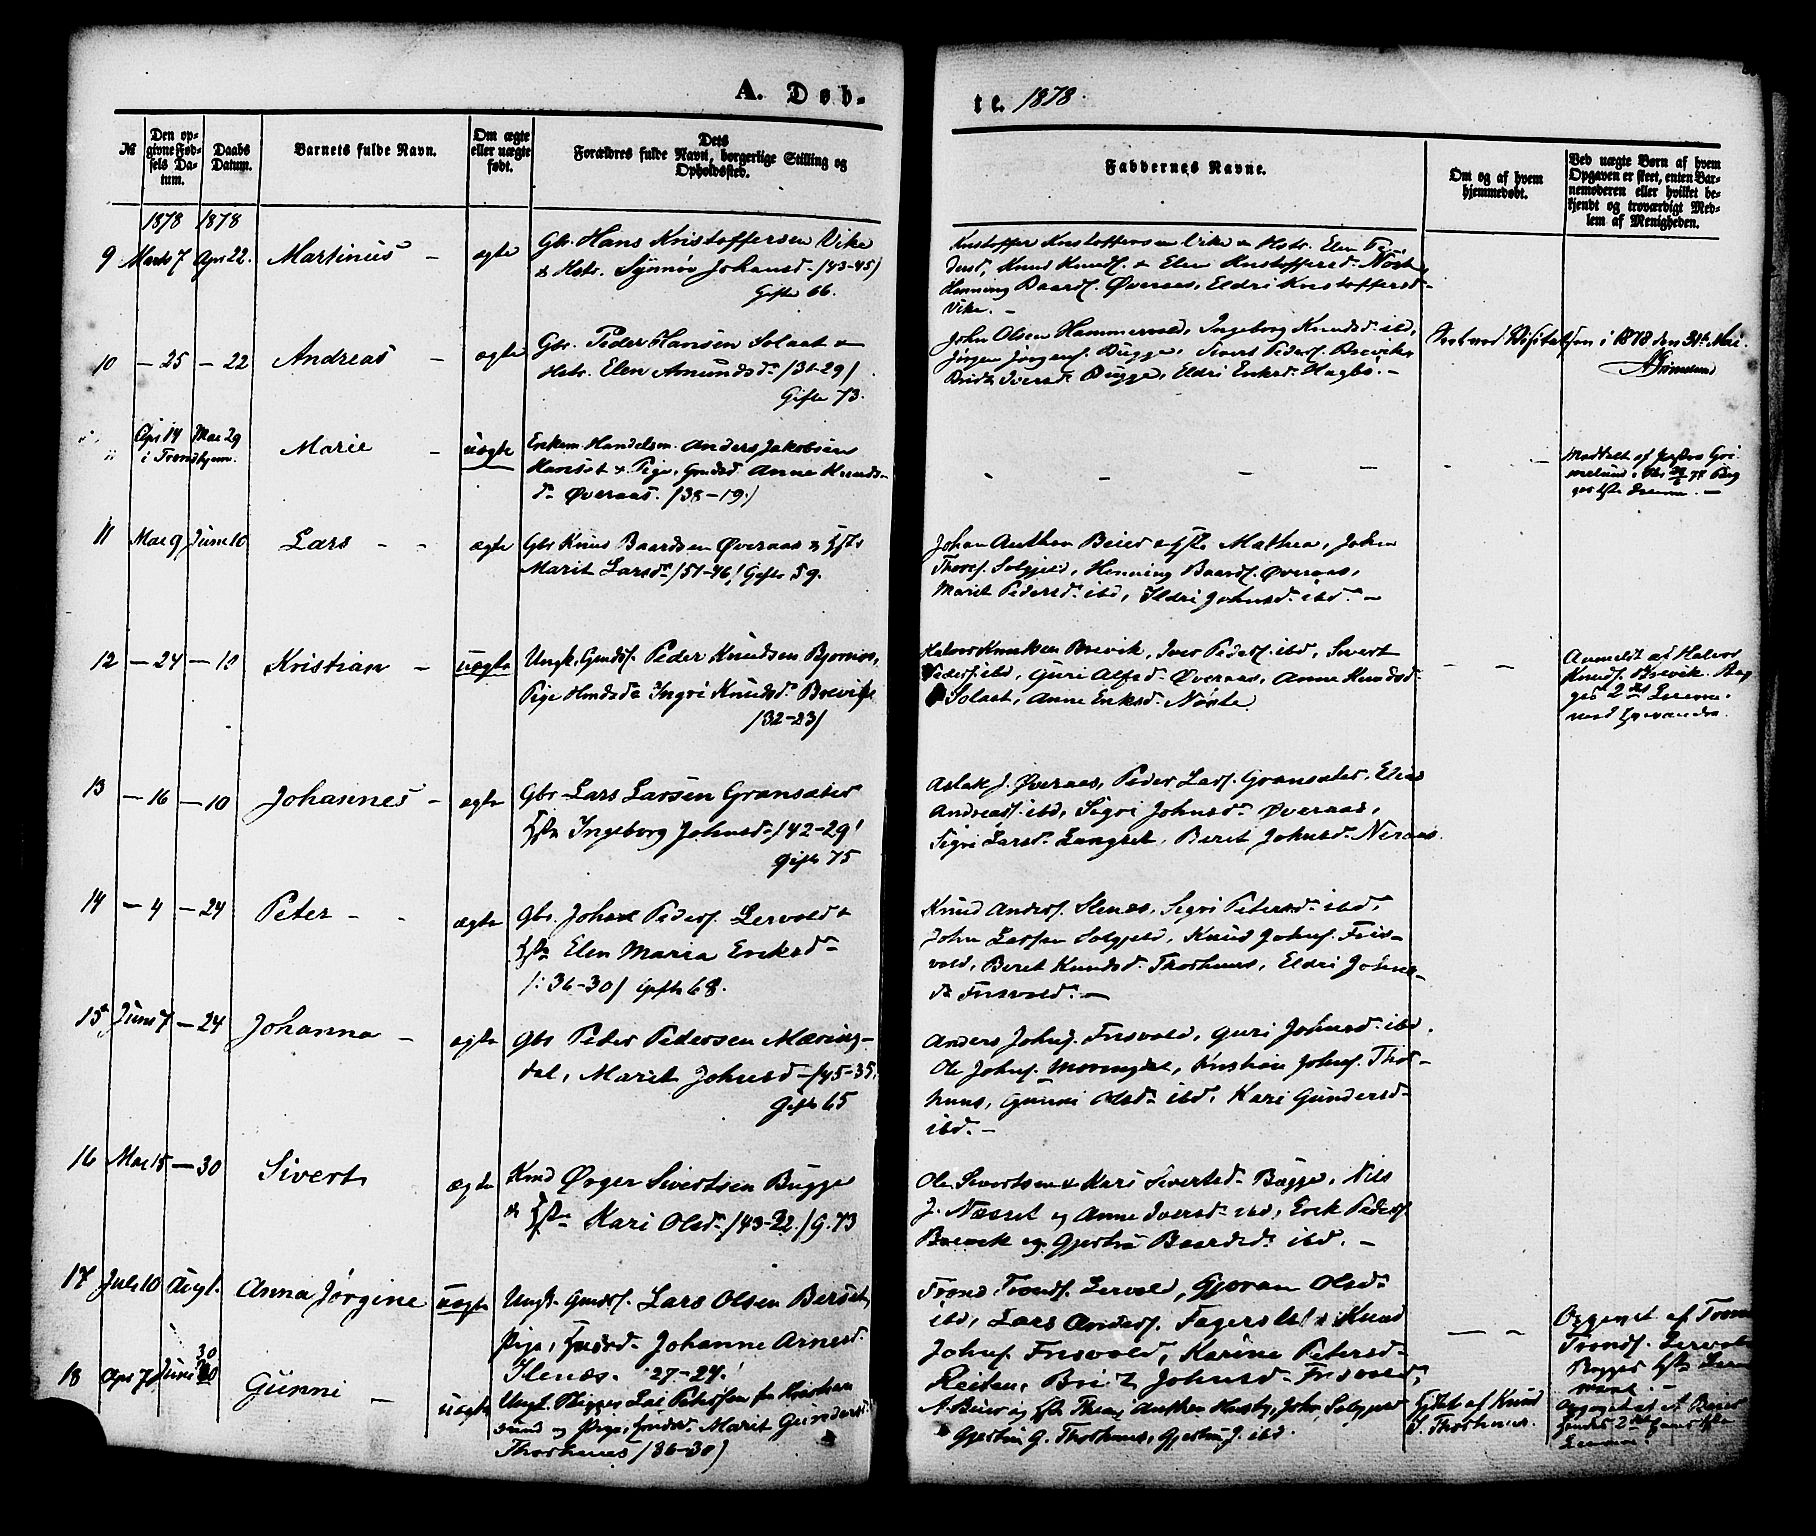 A. Døb-
te. 1878.
№
Den op-
givne Fød-
sels Da-
tum.
Daabs
Datum.
Barnets fulde Navn.
Om ægte
eller uægte
født.
Dets
Forældres fulde Navn, borgerlige Stilling og
Opholdssted.
Faddernes Navne.
Om og af hvem
hjemmedøbt.
Ved uægte Børn af hvem
Opgaven er skeet, enten Bar-
nemoderen eller hvilket be-
kjendt og troværdigt Med-
lem af Menigheden.
1878 1878
9 Marts 7 Apr 22. Martinus - ægte
Gbr. Hans Kristoffersen Vike
& Hstr. Synnøv Johansd. /43-45/
Gifte 66.
Kristoffer Kristoffersen Vike & Hstr. Elen
Knud Knuds. & Elen Kristoffersd. Nøste,
Henning Baards. Øveraas, Eldri Kristoffersd-
Vike. -
10 - 25 - 22 Andreas - ægte
Gbr. Peder Hansen Solaat &
Hstr. Elen Amundsd. /31-29/
Gifte 73.
John Olsen Hammervold, Ingeborg Knudsd. ibd,
Jørgen Jørgens. Bugge, Sivert Peders. Brevik,
Iversd. Bugge, Eldri Eriksd. Hagbø. -
Visitatsen i 1878 den 31te Mai.
Apr 14 Mae 29
i Trondhjem. Marie - uægte
Enkem. Handelsm. Anders Jakobsen
Hanset & Pige, Gmdsd Anne Knuds-
d. Øveraas. /38-19/
Meddelt af
11 Mae 9 Juni 10 Lars - - ægte
Gbr Knud Baardsen Øveraas & Hstr
Marit Larsd. /51-46/ Gifte 59.
Johan Anthon Beier & Hstr Mathea, John
Thores. Solgjeld, Henning Baards. Øveraas,
Marit Pedersd. ibd, Eldri Johnsd. ibd. -
12 - 24 - 10 Kristian - uægte
Ungk. Gmdss. Peder Knudsen Bjørnøs,
Pige Hmdsd. Ingri Knudsd. Brevik
/32-23/
Halvor Knudsen Brevik, Iver Peders. ibd, Sivert
Peders. ibd, Guri Alfsd. Øveraas, Anne Knudsd.
Solaat, Anne Eriksd. Nøste.
Anmeldt af Halvor
Knuds. Brevik.
13 - 16 - 10 Johannes - ægte
Gbr Lars Larsen Gransæter
Hstr Ingeborg Johnsd. /42-29/
Gifte 75
Aslak J. Øveraas, Peder Lars. Gransæter, Elias
Andreass. ibd, Sigri Johnsd. Øveraas,
Sigri Larsd. Langset, Beret Johnsd. Neraas.
14 - 4 - 24 Peter - - ægte
Gbr. Johan Peders. Lervold &
Hstr Elen Maria Eriksd.
/: 36-30/ Gifte 68.
Knud Anders. Ilenæs, Sigri Petersd. ibd,
John Larsen Solgjeld, Knud Johns. Fris-
vold, Beret Knudsd. Thorhuus, Eldri Johns-
d. Frisvold. -
15 Juni 7 - 24 Johanna - ægte
Gbr Peder Pedersen Mæring-
dal, Marit Johnsd. /45-35/
Gifte 65
Anders Johns. Frisvold, Guri Johnsd. ibd.
Ole Johns. Kristian Johns. Thor-
huus, Gunni Olsd. ibd, Kari Gundersd.
ibd. -
16 Mae 15 - 30 Sivert ægte
Kmd Ørger Sivertsen Bugge
& Hstr Kari Olsd. /43-32./ G. 73
Ole Sivertsen & Kari Sivertsd. Bugge, Nils
J. Næsset og Anne Iversd. ibd, Erik Peders.
Brevik og Gjertru Baardsd. ibd. -
17 Juli 10 Aug 1. Anna Jørgine uægte
Ungk. Gmdss. Lars Olsen Berset,
Pige, Johanne Arnesd.
Ilenæs. /27-24/
Trond Tronds. Lervold, Gjoran Olsd.
ibd, Lars Anders. Fagerslet & Knud
Johns. Frisvold, Karine Petersd.
Reiten, Brit Johnsd. Frisvold,
Opgivet af Trond
Tronds. Lervold
18 Apr 7 Juni 30 Gunni - uægte
Ungk. Skipper Lars Petersen fra Kristian-
sund og Pige, Marit Gundersd.
Thorhuus /36-30/
A. Beier og Hstr Thea, Anthon Husby, John Solgjeld
Gjertru G. Thorhuus, Gjertru J. ibd.
af Knud
J. Thorhuus.
Opgivet af A Beier